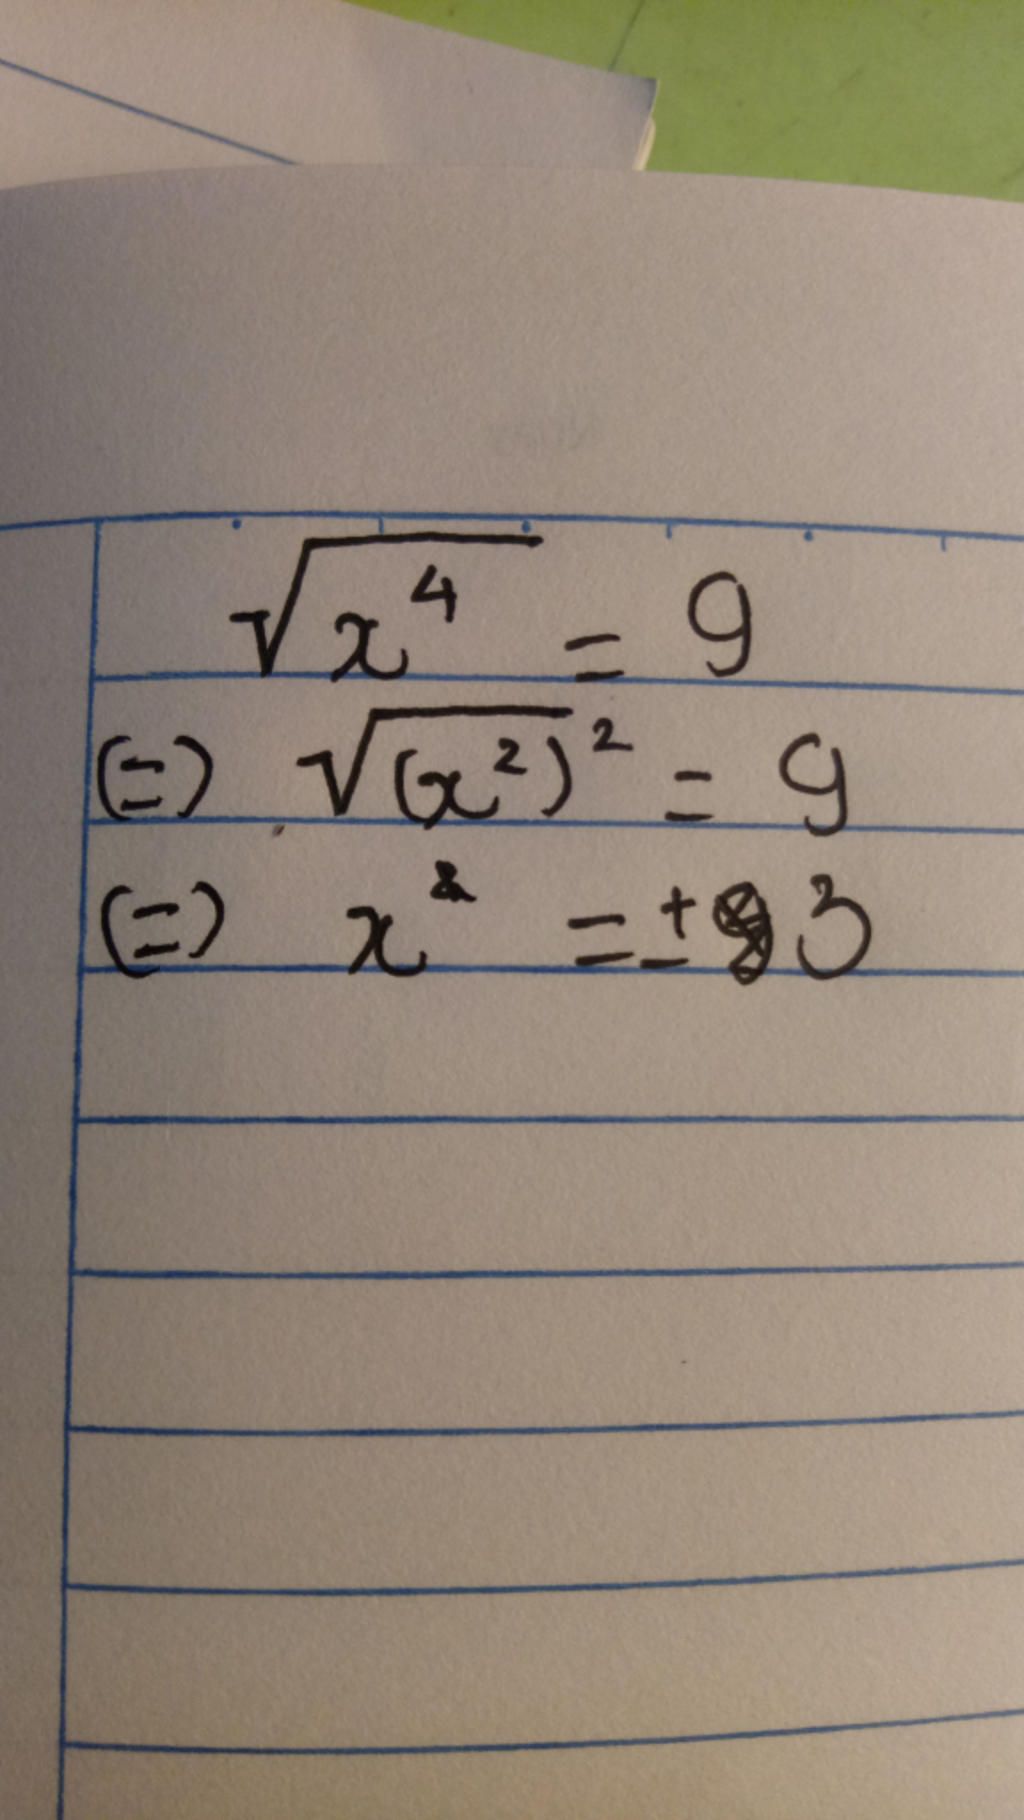 √x⁴ = 9
(=) √(x²)² = 9
(=) x = ± 3